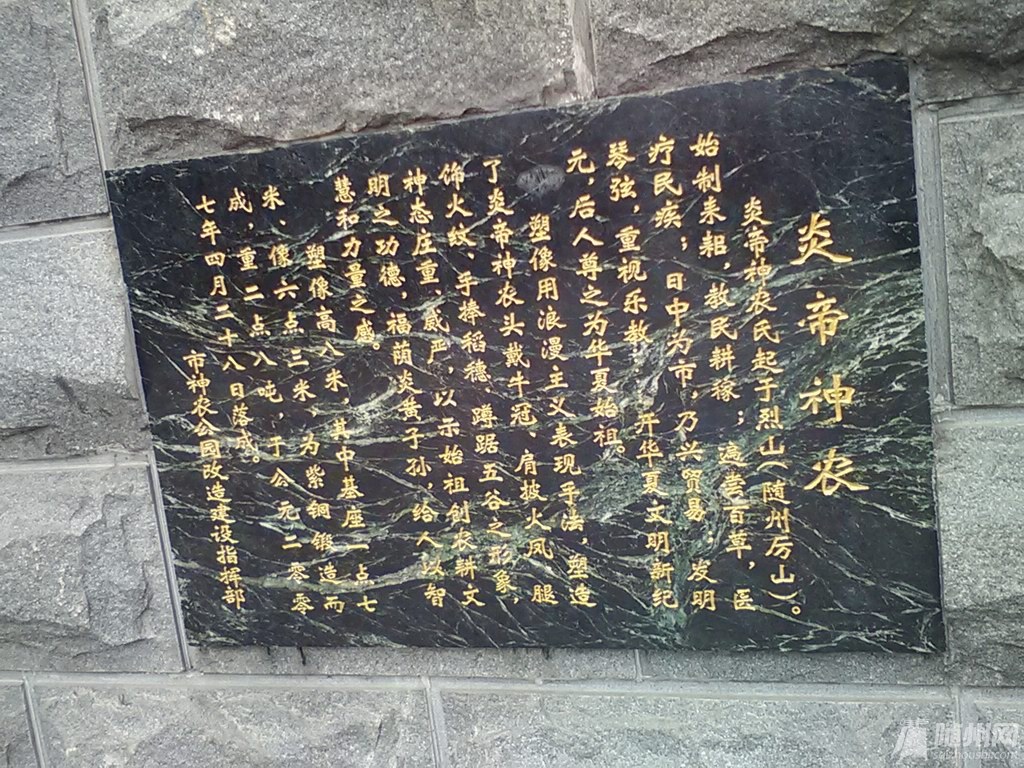 炎帝神农
炎帝神农氏起于烈山(随州厉山)。
始制耒耜,教民耕稼;遍尝百草,医
疗民疾;日中为市,乃兴贸易;发明
琴弦,重视乐教,开华夏文明新纪
元,后人尊之为华夏始祖。
塑像用浪漫主义表现手法,塑造
了炎帝神农头戴牛冠、肩披火凤、腿
饰火纹、手捧稻穗、蹲踞五谷之形象,
神态庄重、威严,以示始祖创农耕文
明之功德,福荫炎黄子孙,给人以智
慧和力量之感。
塑像高八米,其中基座一点七
米、像六点三米,为紫铜锻造而
成,重二点八吨,于公元二零零
七年四月二十八日落成。
市神农公园改造建设指挥部
随州网